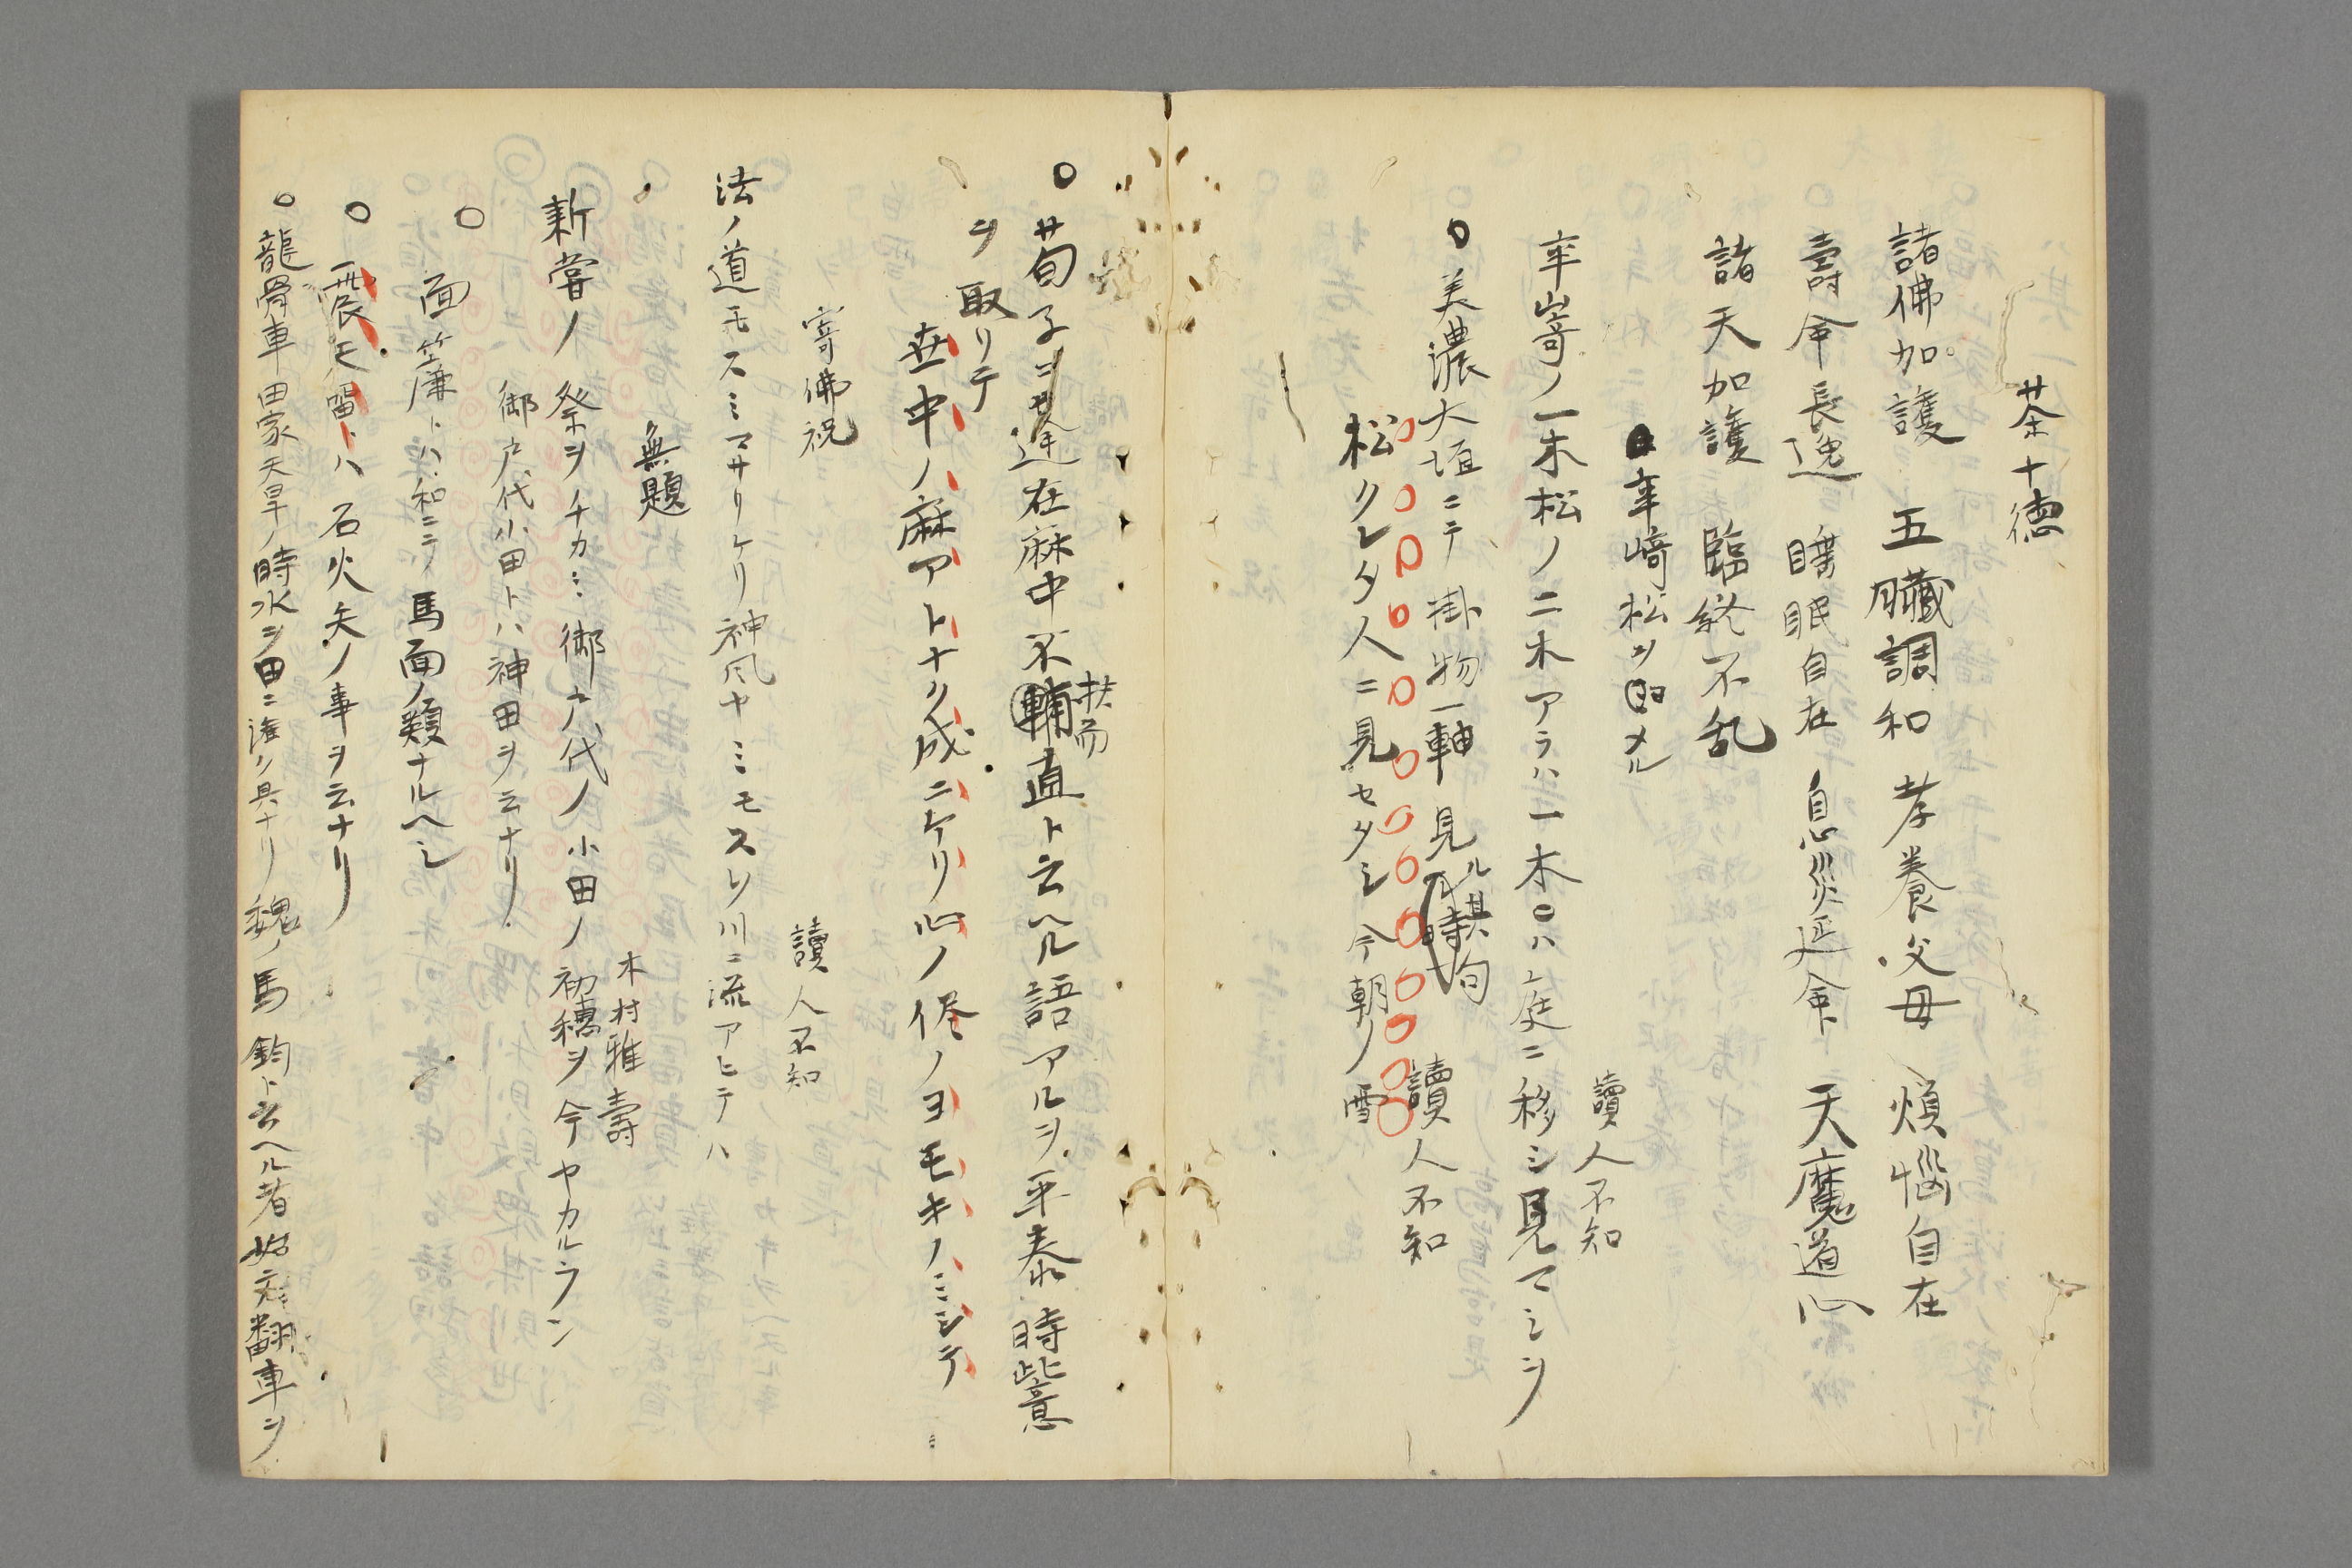 茶十徳
諸佛加護　五臓調和　孝養父母　煩悩自在
壽命長逸　睡眠自在　息災延命　天魔道心
諸天加護　臨終不乱
辛崎松ヲ
讀人不知
辛嵜ノ一木松ノ二木アラハ一木ハ庭ニ移シ見マシヲ
○美濃大垣ニテ掛物一軸見ル其句
讀人不知
松クレタ人ニ見セタシ今朝ノ雪
○荀子ニ蓬在麻中不扶而直ト云ヘル語アルヲ平泰時此意
ヲ取リテ
世中ノ麻アトナク成ニケリ心ノ侭ノヨモキノミシテ
寄佛祝
讀人不知
法ノ道モスミマサリケリ神風ヤミモスソ川ニ流アヒテハ
無題
木村雅壽
新嘗ノ祭ヲチカミ御戸代ノ小田ノ初穂ヲ今ヤカルラン
御戸代小田トハ神田ヲ云ナリ
○
面簾トハ和ニテ馬面ノ類ナルヘシ
○トハ石火矢ノ事ヲ云ナリ
○龍骨車田家天旱ノ時水ヲ田ニ灌ク具ナリ魏ノ馬鈞ト云ヘル者始テ翻車ヲ